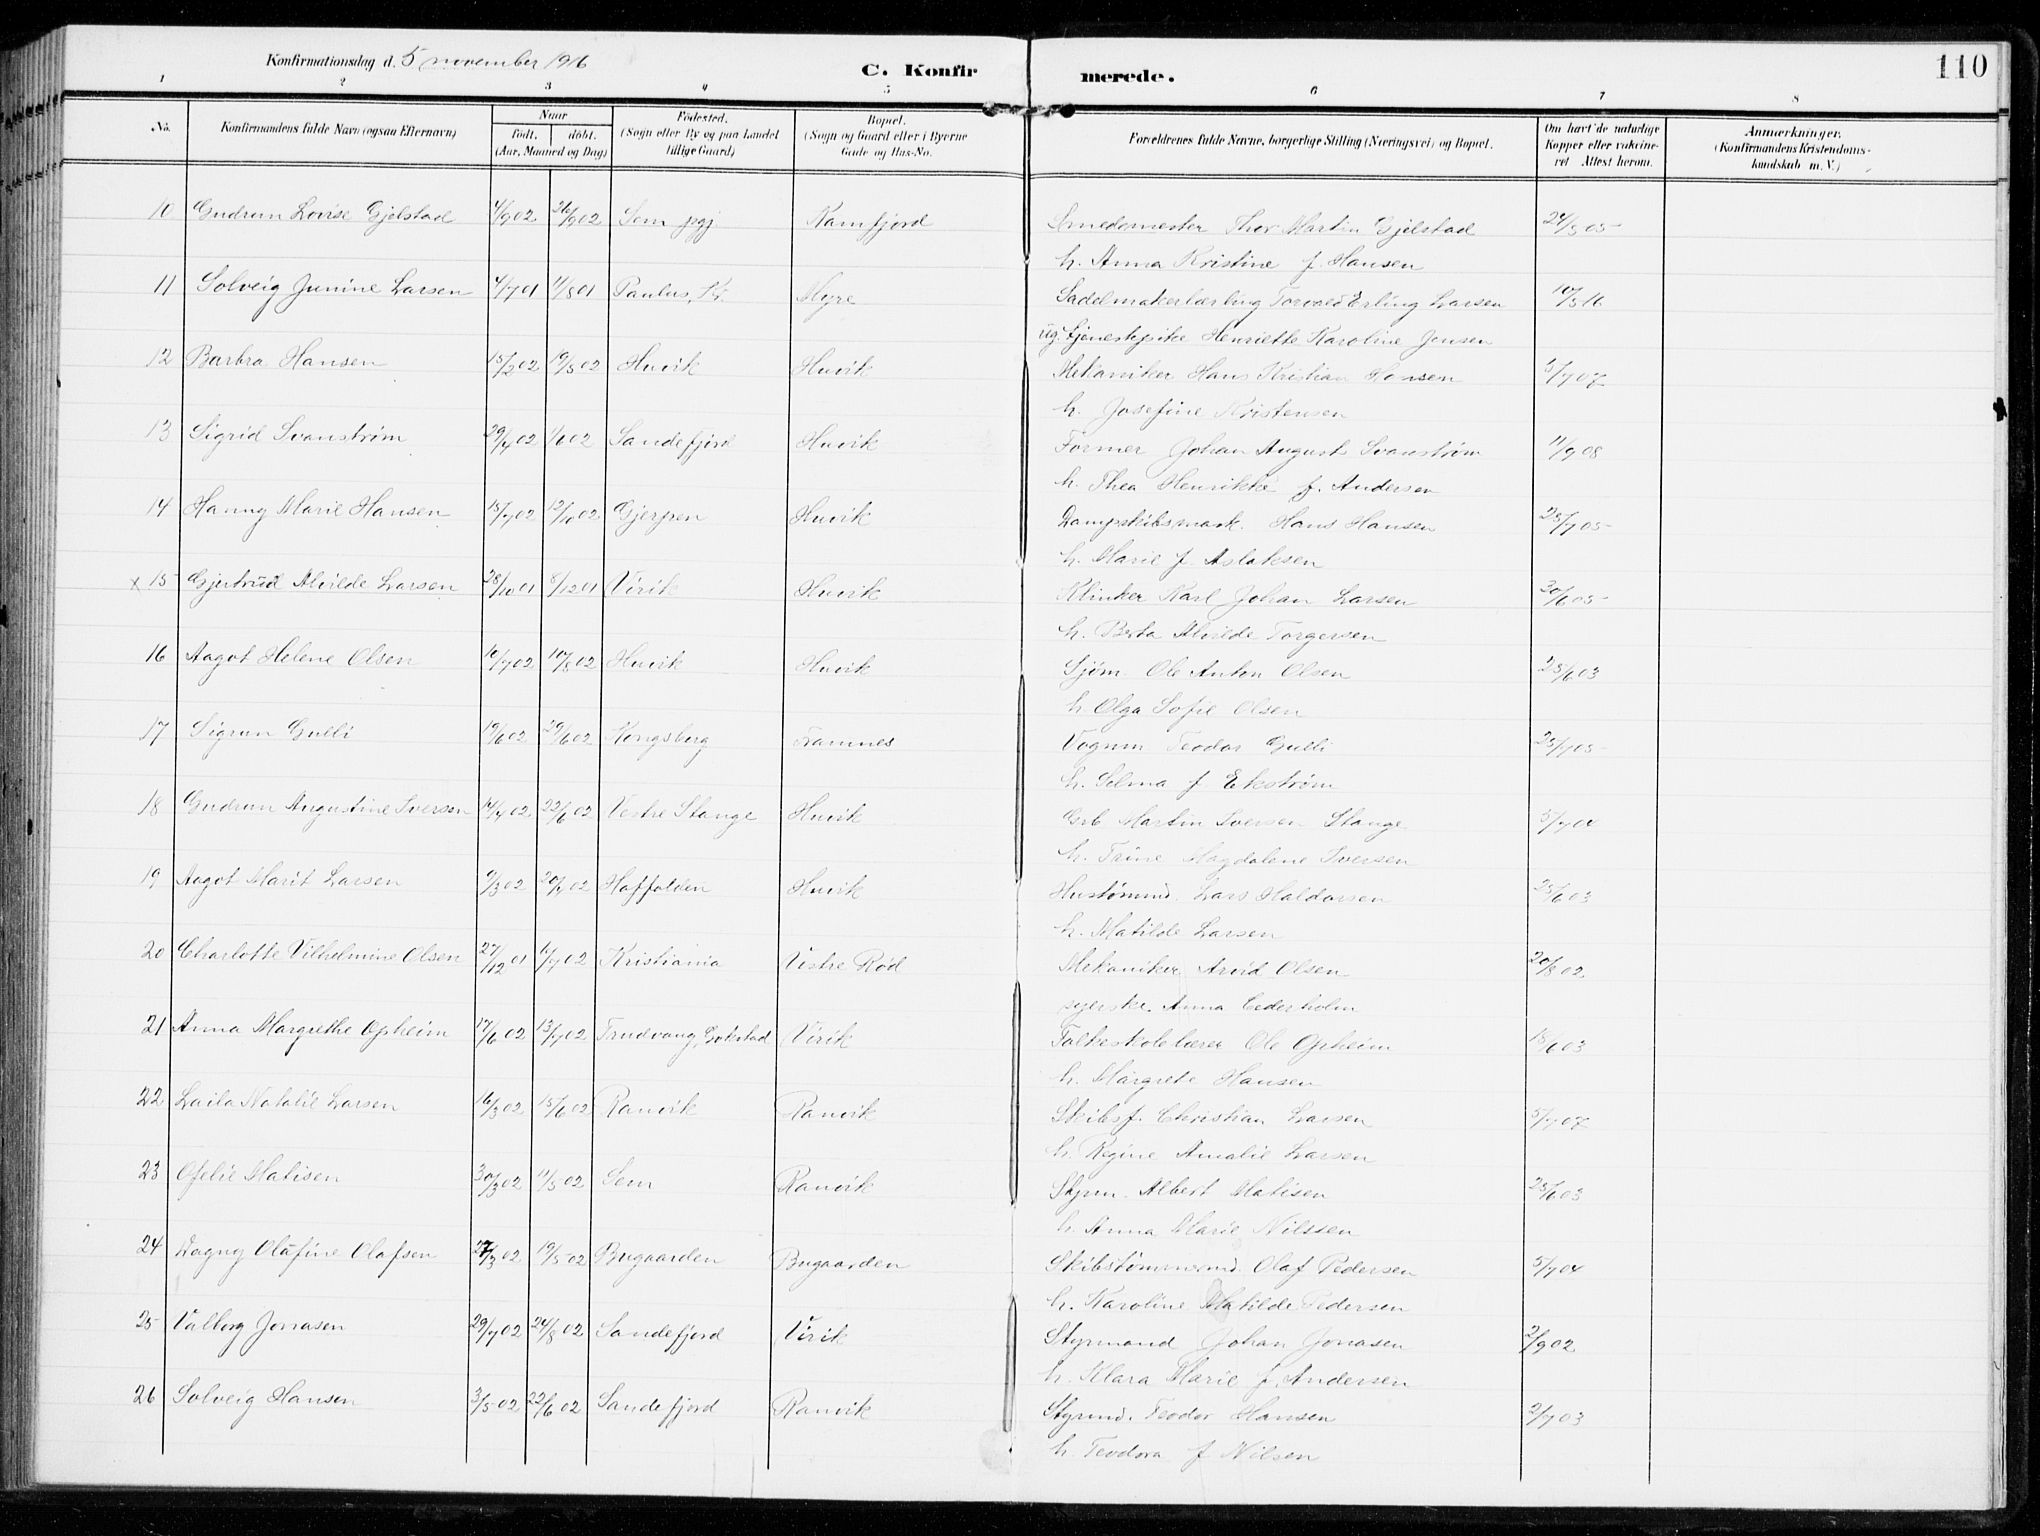 Konfirmationsdag d. 5 november 1916
C. Konfirmerede.
110
1 2 3 4 5 6 7 8
No.
Konfirmandens fulde Navn (ogsaa Efternavn)
Naar
födt. döbt.
(Aar, Maaned og Dag)
Födested.
(Sogn eller By og paa Landet
tillige Gaard)
Bopæl.
(Sogn og Gaard eller i Byerne
Gade og Hus-No.
Forældrenes fulde Navne, borgerlige Stilling (Næringsvei) og Bopæl.
Om havt de naturlige
Kopper eller vakcine-
ret Attest herom.
Anmærkninger.
(Konfirmandens Kristendoms-
kundskab m. V.)
10 Gudrun Lovise Gjelstad 4/9 02 26/9 02 Sem pgj. Kamfjord Smedemester Thor Martin Gjelstad 24/5 05
h. Anna Kristine f. Hansen
11 Solveig Junine Larsen 4/7 01 11/8 01 Paulus, Kr. Myre Sadelmakerlærling Torvald Erling Larsen 10/5 16
ug. tjenestepike Henriette Karoline Jensen
12 Barbra Hansen 15/2 02 19/5 02 Huvik Huvik Mekaniker Hans Kristian Hansen 5/7 07
h. Josefine Kristensen
13 Sigrid Svanstrøm 29/4 02 1/6 02 Sandefjord Huvik Former Johan August Svanstrøm 11/9 08
h. Thea Henrikke f. Andersen
14 Hanny Marie Hansen 15/7 02 12/10 02 Gjerpen Huvik Dampskibsmask. Hans Hansen 25/7 05
h. Marie f Aslaksen
x 15 Gjertrud Alvilde Larsen 28/10 01 8/12 01 Virik Huvik Klinker Karl Johan Larsen 30/6 05
h. Berta Alvilde Torgersen
16 Aagot Helene Olsen 16/7 02 10/8 02 Huvik Huvik Sjøm. Ole Anton Olsen 25/6 03
h. Olga Sofie Olsen
17 Sigrun Gulli 19/6 02 29/6 02 Kongsberg Framnes Vognm Teodor Gulli 25/7 05
h. Selma f Ekstrøm
18 Gudrun Augustine Iversen 14/4 02 22/6 02 Vestre Stange Huvik Grb Martin Iversen Stange 5/7 04
h. Trine Magdalene Iversen
19 Aagot Marit Larsen 9/3 02 20/4 02 Haffolden Huvik Hustømmd. Lars Haldorsen 25/6 03
h. Matilde Larsen
20 Charlotte Vilhelmine Olsen 27/12 01 /7 02 Kristiania Vestre Rød Mekaniker Arvid Olsen 20/8 02
syerske Anna Cederholm
21 Anna Margrethe Opheim 17/6 02 13/7 02 Trudvang, Gokstad Virik Folkeskolelærer Ole Opheim 18/6 03
h. Margrete Hansen
22 Laila Natalie Larsen 16/3 02 15/6 02 Ranvik Ranvik Skibsf. Christian Larsen 5/7 07
h. Regine Amalie Larsen
23 Ofelie Matisen 30/3 02 11/5 02 Sem Ranvik Styrm. Albert Matisen 25/6 03
h. Anna Marie Nilssen
24 Dagny Olafine Olafsen 27/3 02 19/5 02 Bugaarden Bugaarden Skibstømmermd. Olaf Pedersen 5/7 04
h. Karoline Matilde Pedersen
25 Valborg Jonasen 29/7 02 24/8 02 Sandefjord Virik Styrmand Johan Jonasen 2/9 02
h. Klara Marie f. Andersen
26 Solveig Hansen 3/5 02 22/6 02 Sandefjord Ranvik Styrmd. Teodor Hansen 2/7 03
h. Teodora f Nilsen